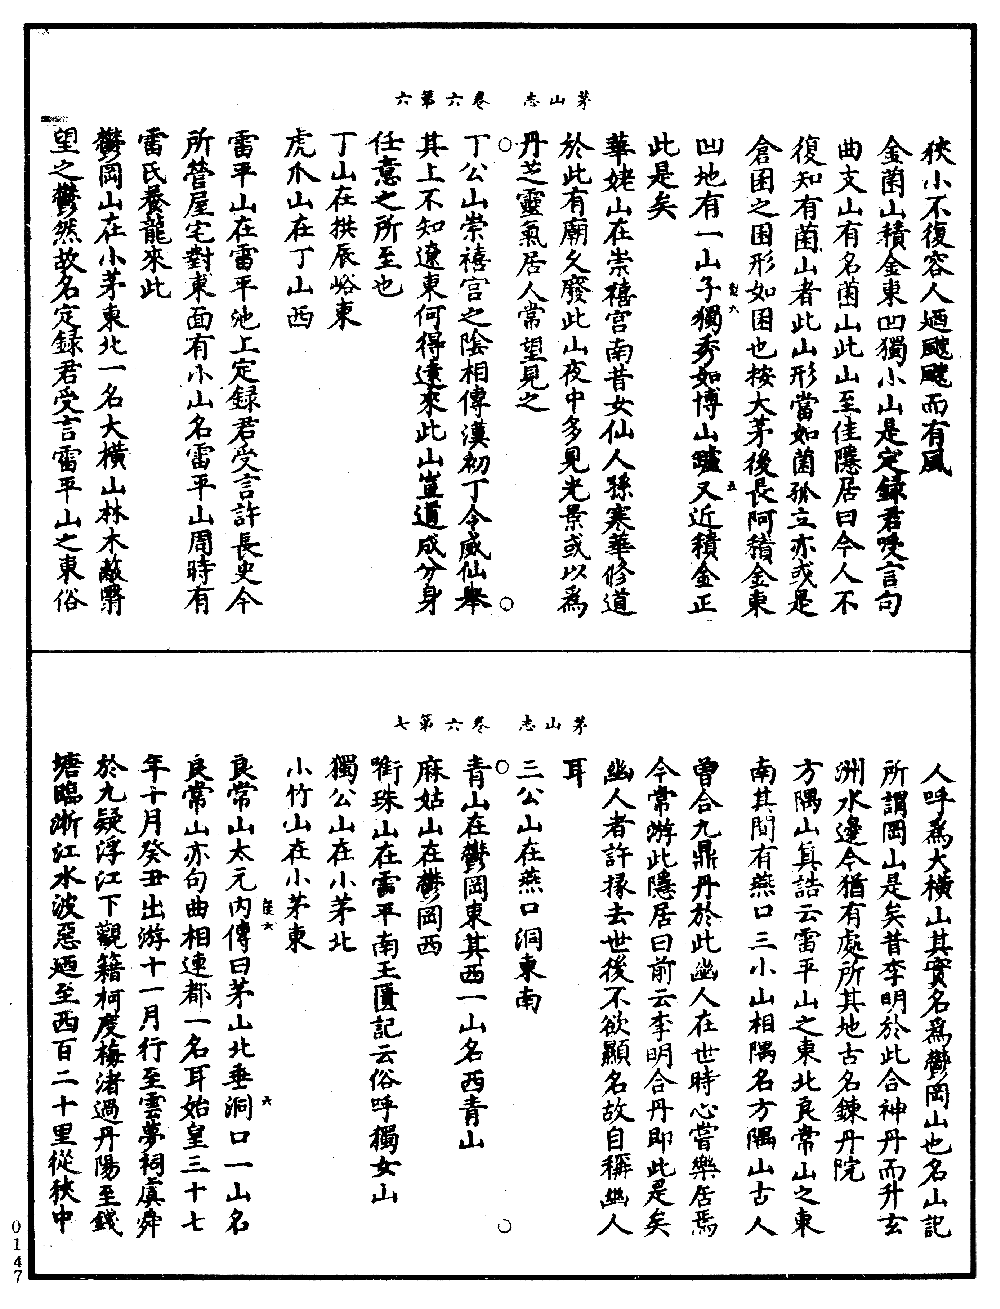 茅山志　卷六第六
狹小不復容人廼颼颼而有風
金菌山積金東凹獨小山是定錄君受言句
曲支山有名菌山此山至佳隱居曰今人不
復知有菌山者此山形當如菌孤立亦或是
倉囷之囷形如囷也按大茅後長阿積金東
凹地有一山子獨秀如博山罏又近積金正
此是矣
華姥山在崇禧宮南昔女仙人孫寒華修道
於此有廟久廢此山夜中多見光景或以爲
丹芝靈氣居人常望見之
丁公山崇禧宮之陰相傳漢初丁令威仙舉
其上不知遼東何得遠來此山豈道成分身
任意之所至也
丁山在拱辰峪東
虎爪山在丁山西
雷平山在雷平池上定錄君受言許長史今
所營屋宅對東面有小山名雷平山周時有
雷氏養龍來此
鬱岡山在小茅東北一名大橫山林木蔽翳
望之鬱然故名定錄君受言雷平山之東俗
茅山志　卷六第七
人呼爲大橫山其實名爲鬱岡山也名山記
所謂岡山是矣昔李明於此合神丹而升玄
洲水邊今猶有處所其地古名鍊丹院
方隅山真誥云雷平山之東北良常山之東
南其間有燕口三小山相隅名方隅山古人
曾合九鼎丹於此幽人在世時心嘗樂居焉
今常游此隱居曰前云李明合丹即此是矣
幽人者許掾去世後不欲顯名故自稱幽人
耳
三公山在燕口洞東南
青山在鬱岡東其西一山名西青山
麻姑山在鬱岡西
銜珠山在雷平南玉匱記云俗呼獨女山
獨公山在小茅北
小竹山在小茅東
良常山太元內傳曰茅山北垂洞口一山名
良常山亦句曲相連都一名耳始皇三十七
年十月癸丑出游十一月行至雲夢祠虞舜
於九疑浮江下觀籍柯度梅渚過丹陽至錢
塘臨浙江水波惡廼至西百二十里從狹中
0147